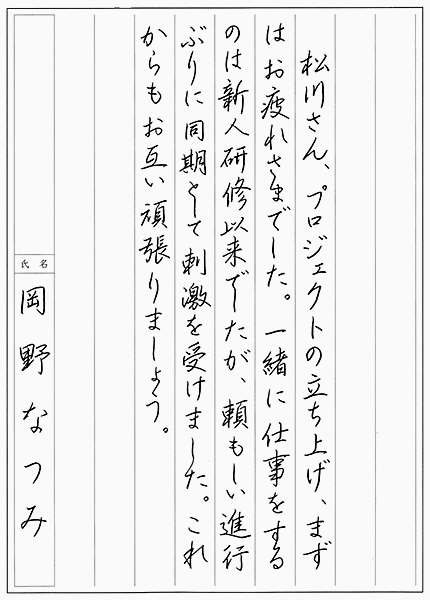 松川さん、プロジェクトの立ち上げ、まず
はお疲れさまでした。一緒に仕事をする
のは新人研修以来でしたが、頼もしい進行
ぶりに同期として刺激を受けました。これ
からもお互い頑張りましょう。
氏名
岡野なつみ